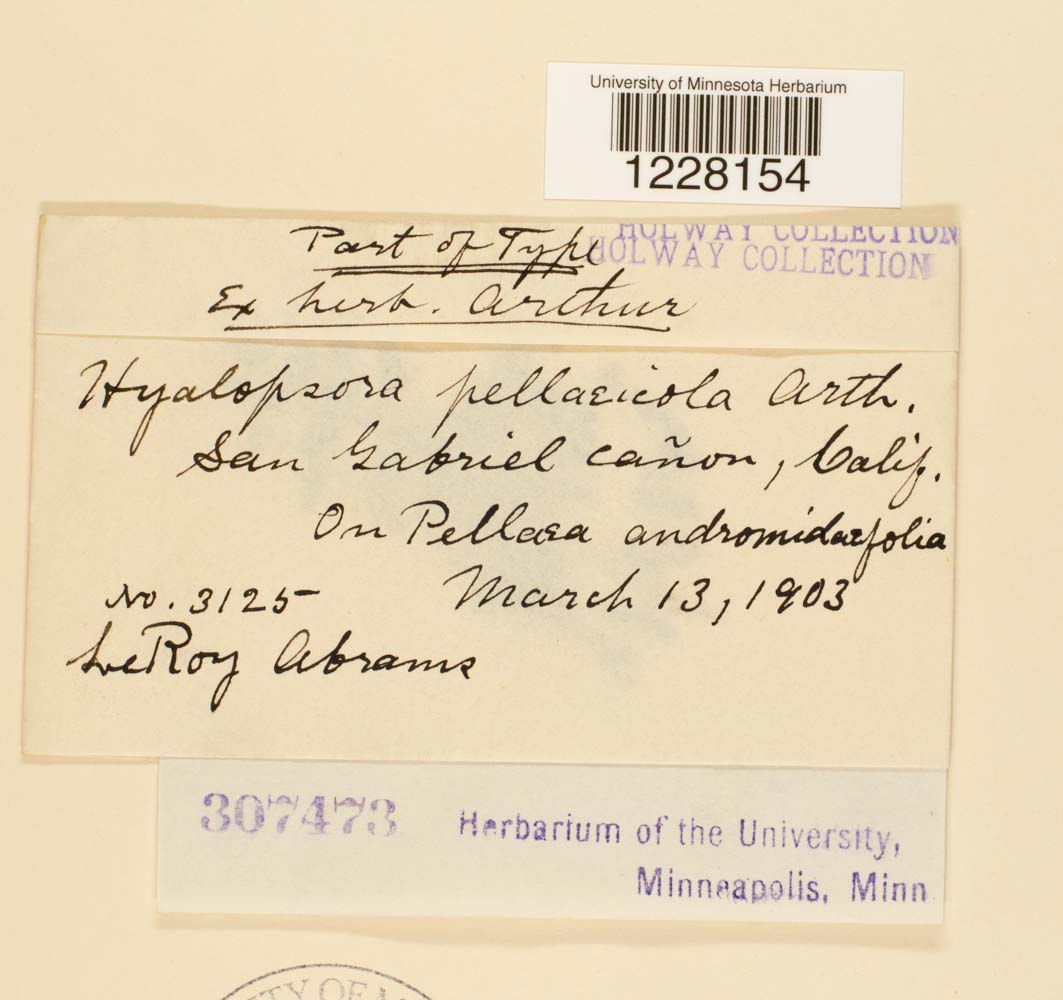 University of Minnesota Herbarium
1228154
HOLWAY COLLECTION
HOLWAY COLLECTION
Part of Type
Ex herb. Arthur
Hyalopsora pellaeicola Arth.
San Gabriel cañon, Calif.
On Pellaea andromidaefolia
No. 3125 March 13, 1903
LeRoy Abrams
307473
Herbarium of the University,
Minneapolis, Minn.